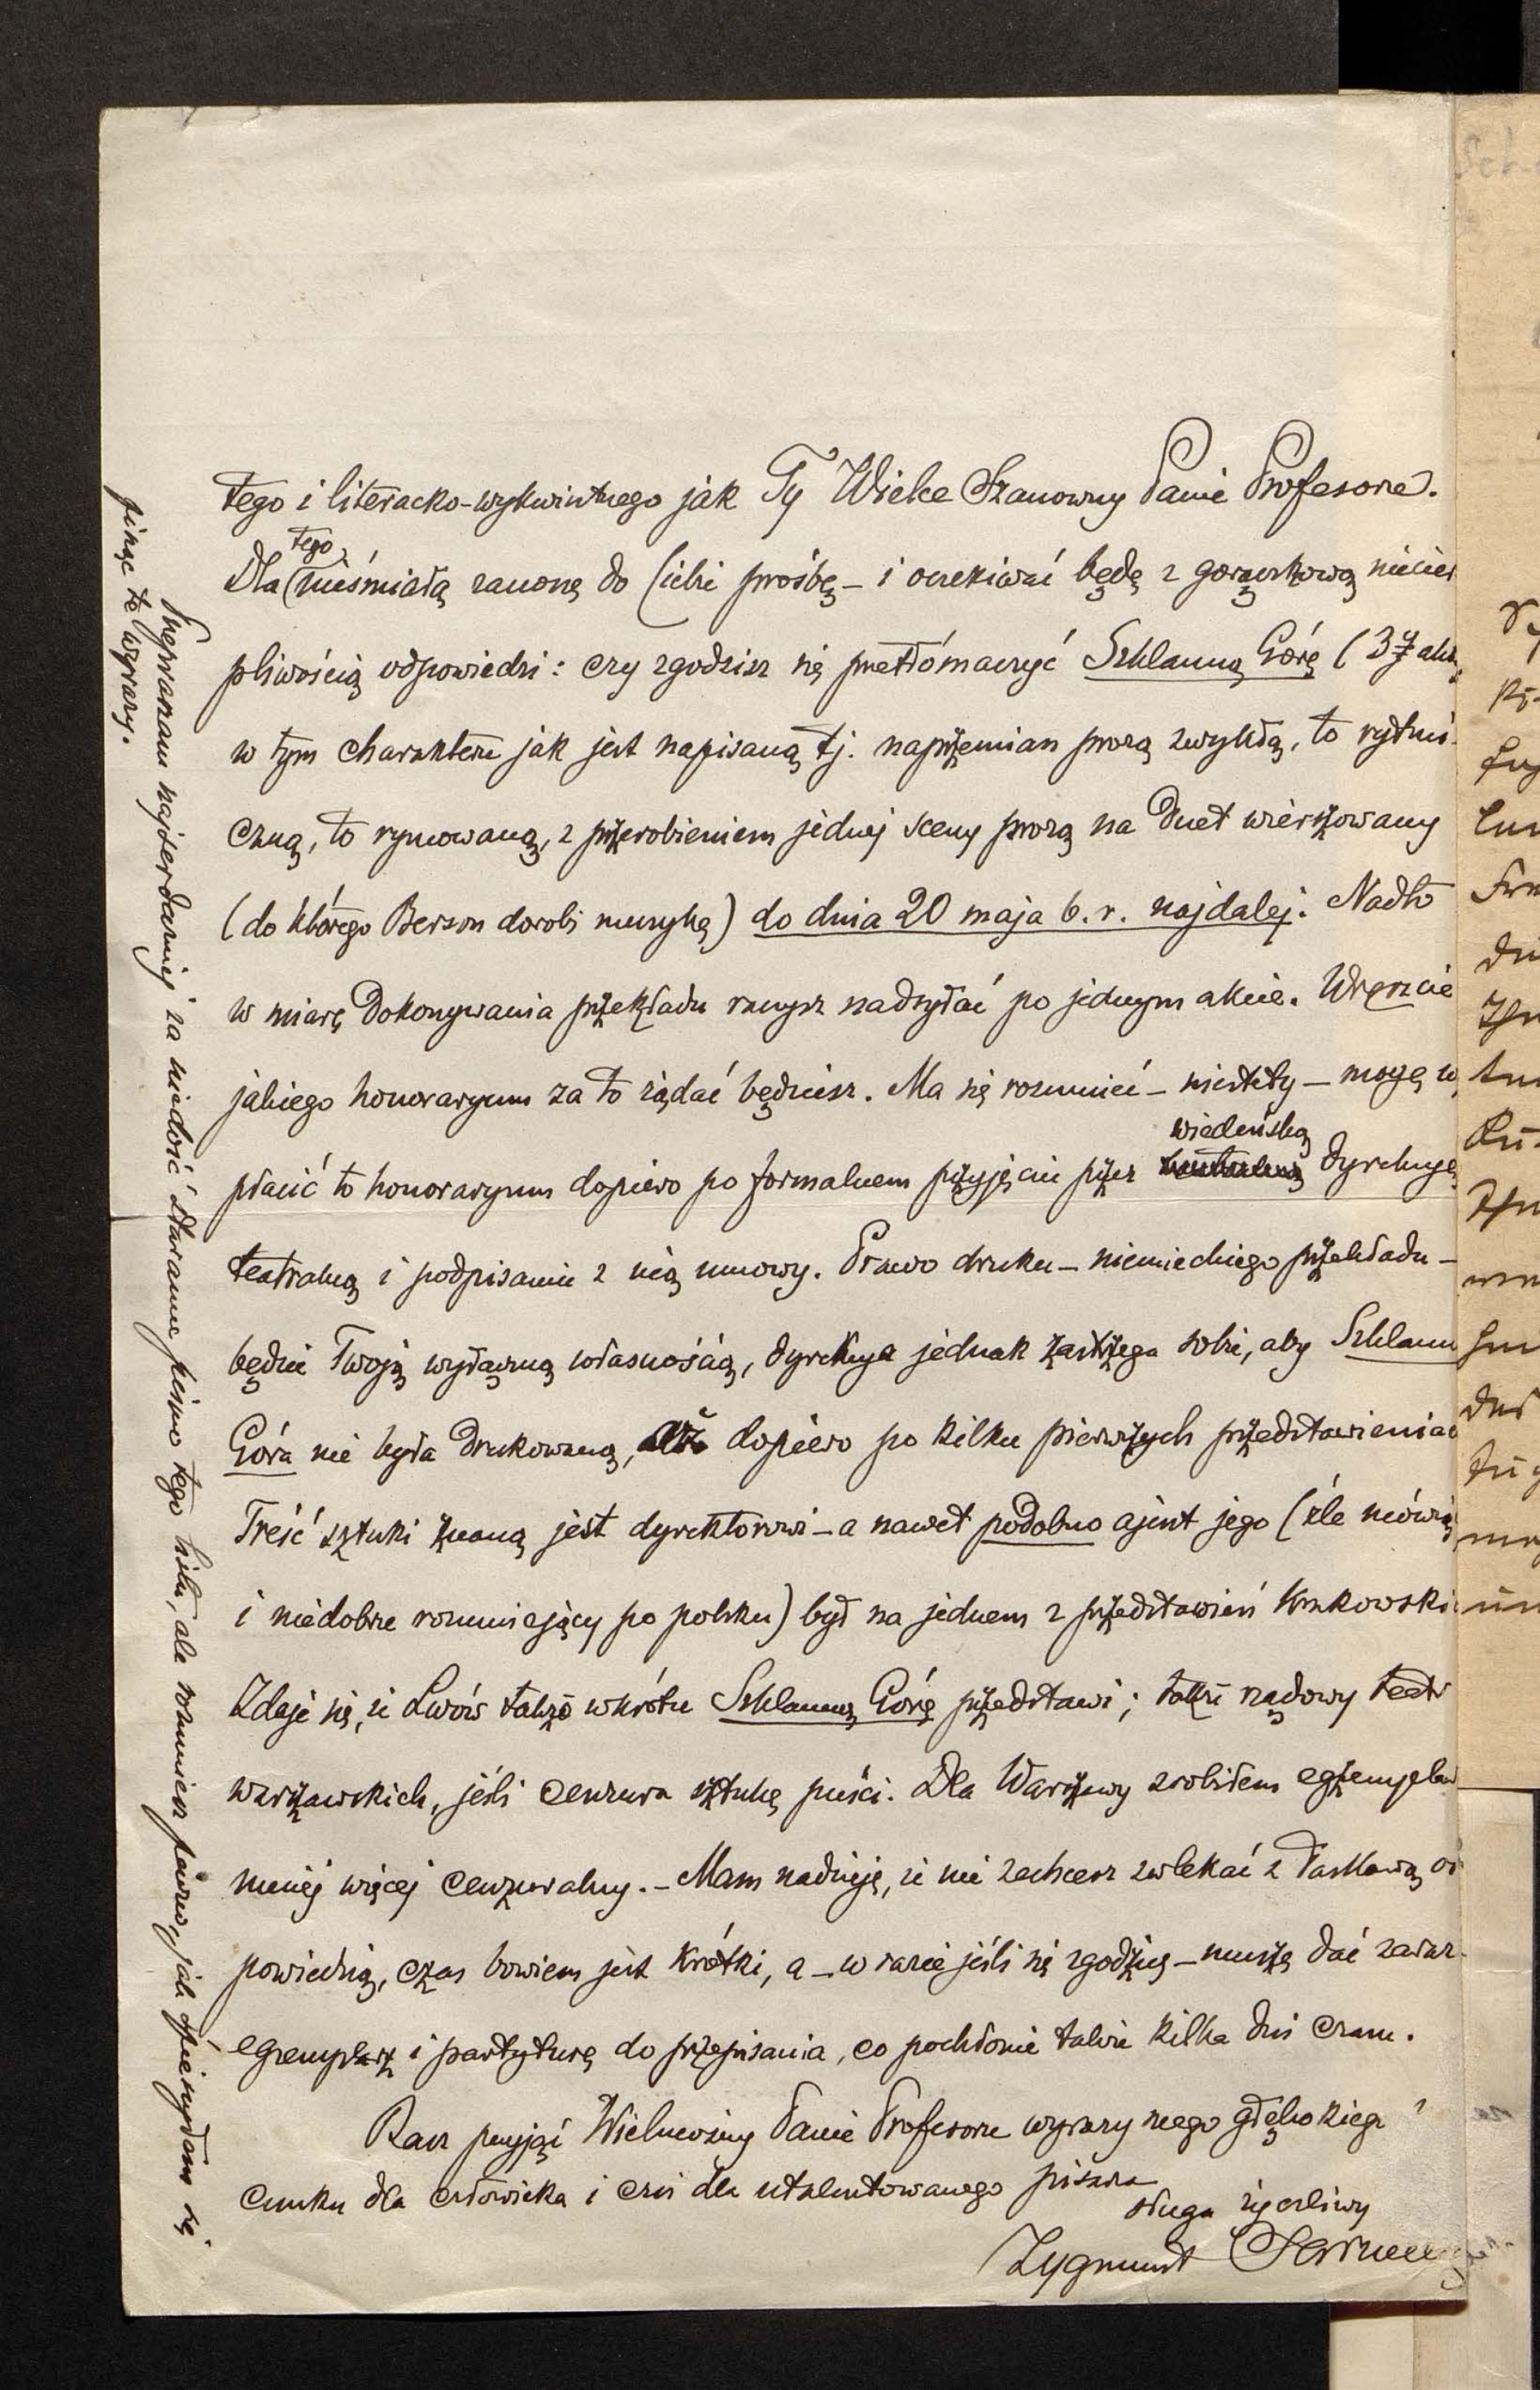 tego i literacko-wykwintnego jak Ty Wielce Szanowny Panie Profesorze.
Dla tego nieśmiałą zanoszę do Ciebie prośbę – i oczekiwać będę z gorączkową niecier
pliwością odpowiedzi: czy zgodzisz się przetłómaczyć Szklanną Górę (3
w tym charakterze jak jest napisaną tj. naprzemian prozą zwykłą, to rytmi-
czną, to rymowaną, z przerobieniem jednej sceny prozą na duet wierszowany
(do którego Berson dorobi muzykę) do dnia 20 maja b. r. najdalej. Nadto
w miarę dokonywania przekładu raczysz nadsyłać po jednym akcie. Wreszcie
jakiego honoraryum za to żądać będziesz. Ma się rozumieć – niestety – mogę w
płacić to honoraryum dopiero po formalnem przyjęciu przez wiedeńską dyrekcyę
teatralną i podpisaniu z nią umowy. Prawo druku – niemieckiego przekładu –
będzie Twoją wyłączną własnością, dyrekcya jednak zastrzega sobie, aby Szklann
Góra nie była drukowaną, aż dopiero po kilku pierwszych przedstawieniac
Treść sztuki znaną jest dyrektorowi – a nawet podobno ajent jego (źle mówią
i niedobrze rozumiejący po polsku) był na jednem z przedstawień krakowski
Zdaje się, że Lwów także wkrótce Szklanną Górę przedstawi; także rządowy teatr
warszawskich, jeśli cenzura sztukę puści. Dla Warszawy zrobiłem egzemplarz
mniej więcej cenzuralny. – Mam nadzieję, że nie zechcesz zwlekać z łaskawą od
powiedzią, czas bowiem jest krótki, a – w razie jeśli się zgodzisz – muszę dać zaraz
egzemplarz i partyturę do przepisania, co pochłonie także kilka dni czasu.
Racz przyjąć Wielmożny Panie Profesorze wyrazy mego głębokiego
cunku dla człowieka i czci dla utalentowanego pisarza
sługa życzliwy
Zygmunt
Przepraszam najserdeczniej za niedość staranne pismo tego listu, ale rozumiesz pewno, jak spieszyłem się
pisząc te wyrazy.